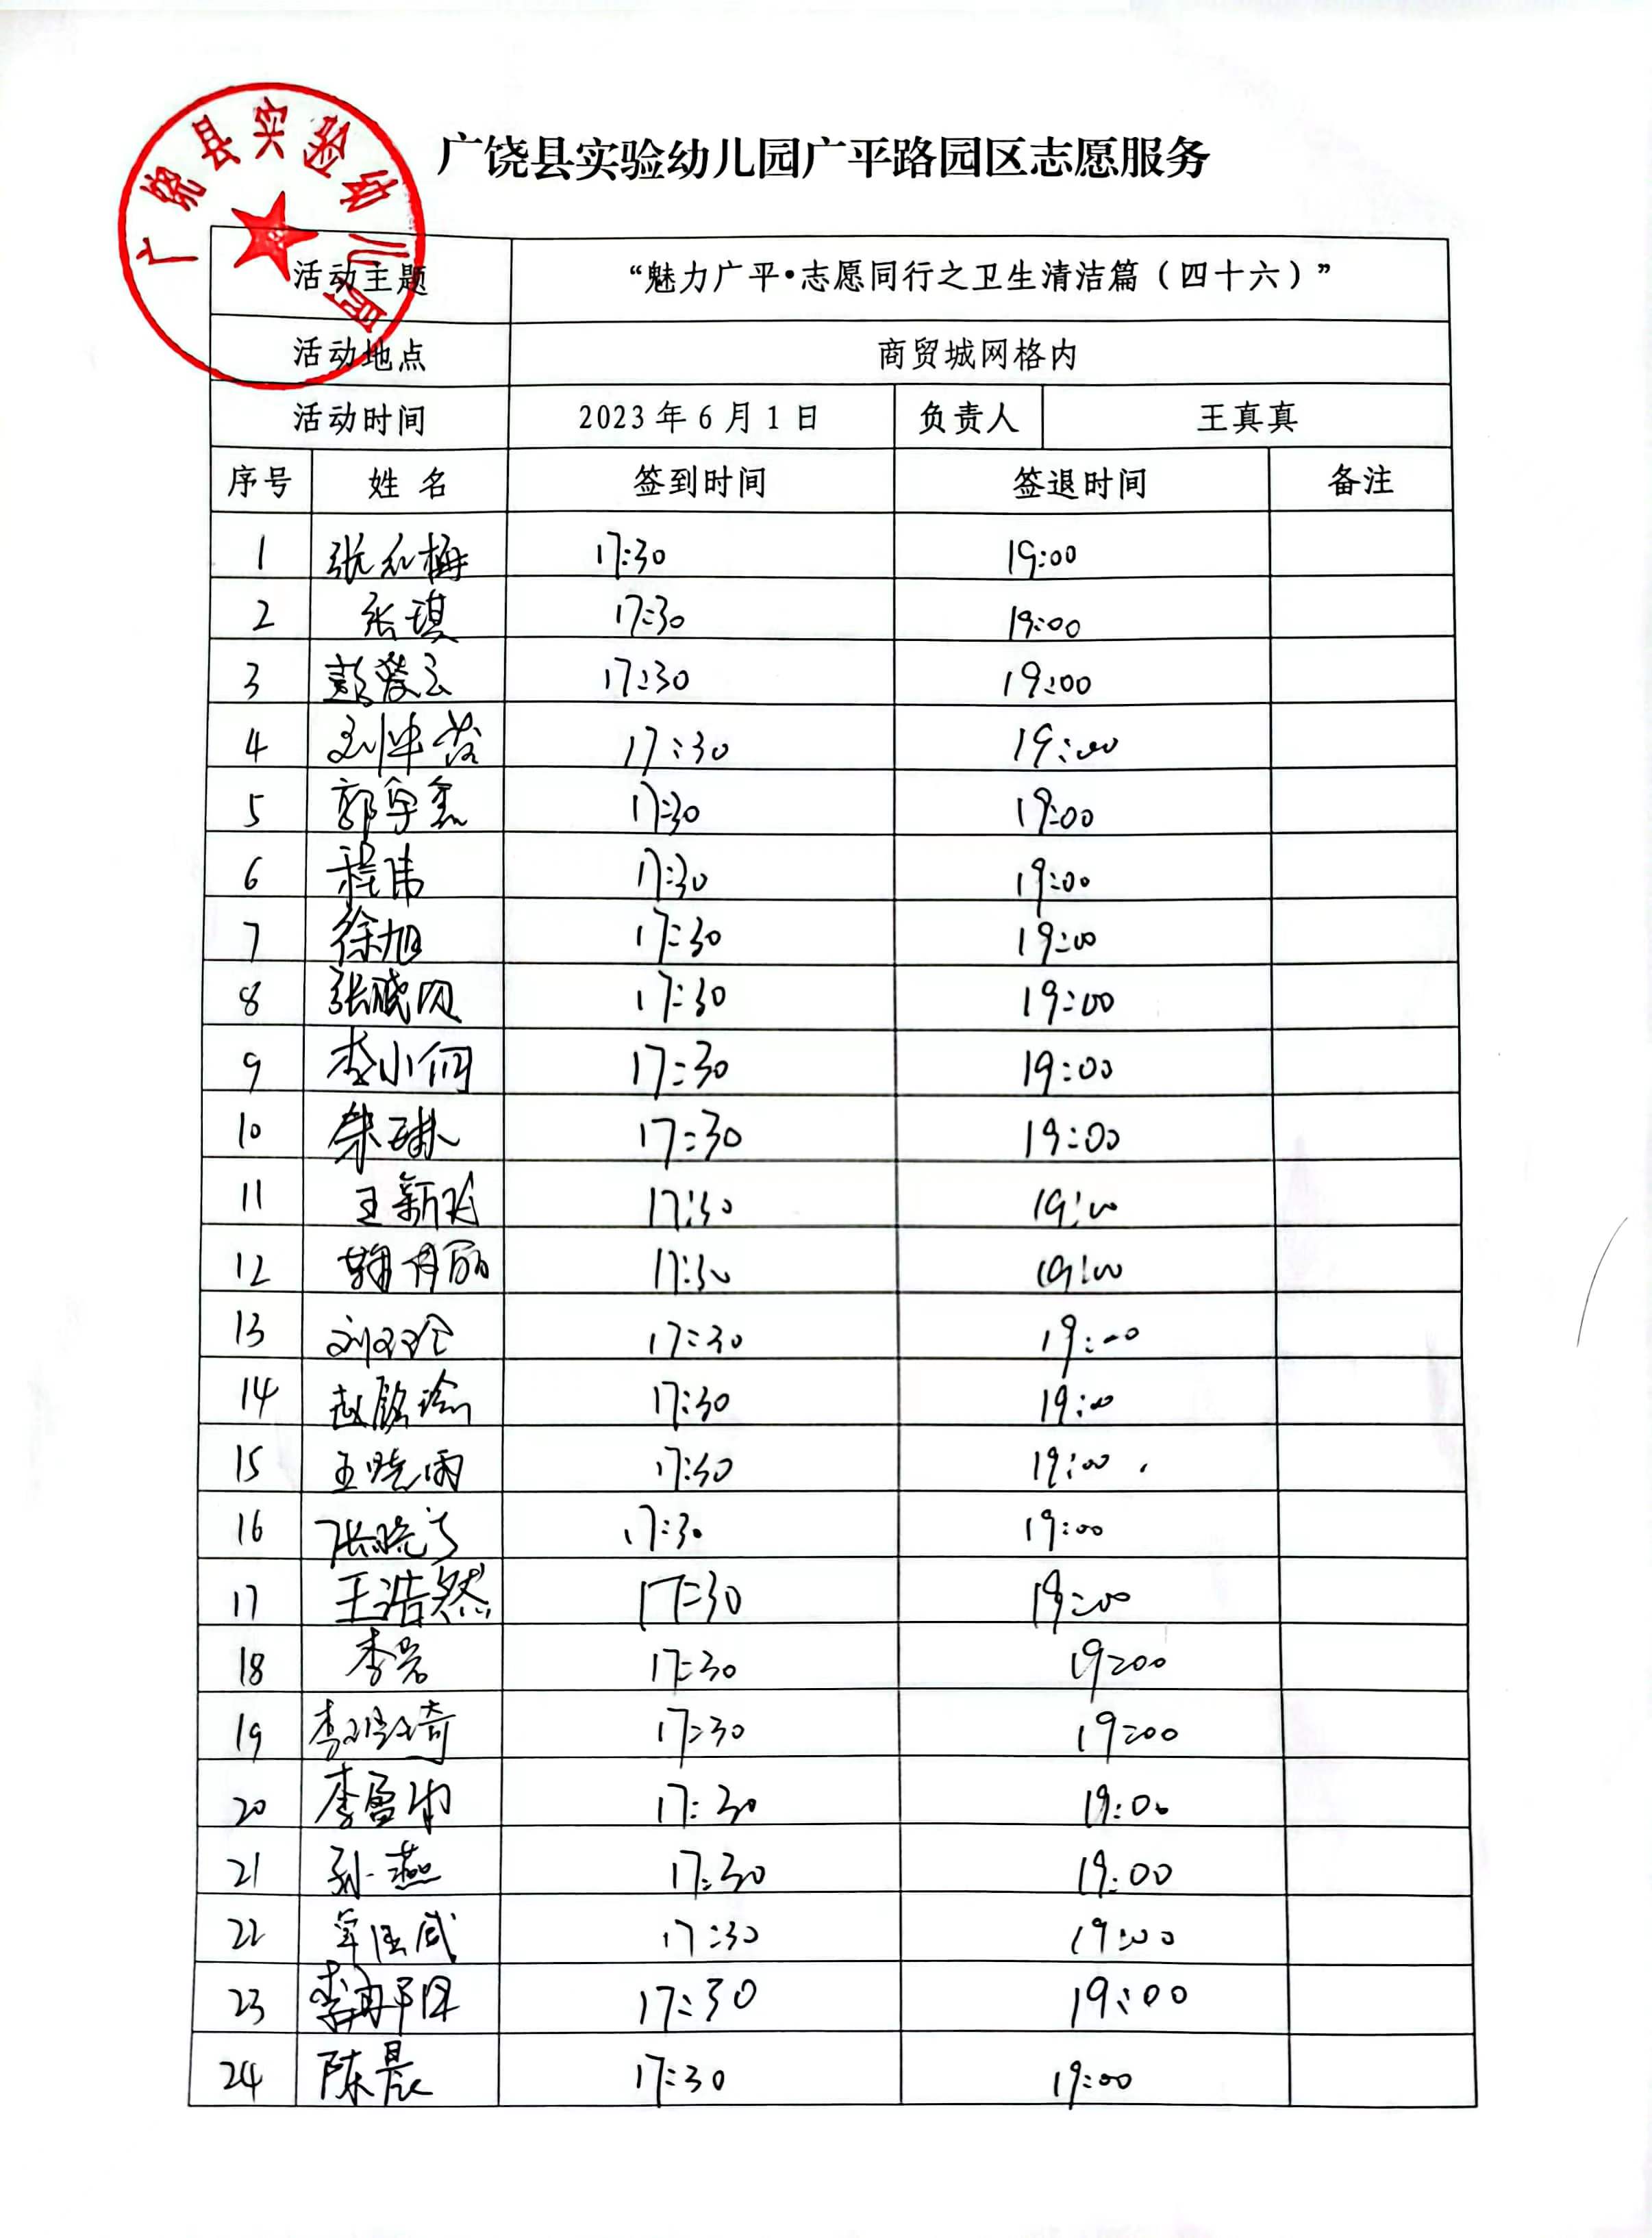 广饶县实验幼儿园
广饶县实验幼儿园广平路园区志愿服务
活动主题 “魅力广平·志愿同行之卫生清洁篇（四十六）”
活动地点 商贸城网格内
活动时间 2023年6月1日 负责人 王真真
序号 姓名 签到时间 签退时间 备注
1 张红梅 17:30 19:00
2 张琪 17:30 19:00
3 彭 17:30 19:00
4 刘 17:30 19:00
5 郭宇鑫 17:30 19:00
6 程伟 17:30 19:00
7 徐旭 17:30 19:00
8 张 17:30 19:00
9 李小何 17:30 19:00
10 荣琳 17:30 19:00
11 王新 17:30 19:00
12 丽 17:30 19:00
13 刘 17:30 19:00
14 赵 17:30 19:00
15 王晓雨 17:30 19:00
16 张晓 17:30 19:00
17 王浩然 17:30 19:00
18 李 17:30 19:00
19 李 琦 17:30 19:00
20 李 17:30 19:00
21 孙燕 17:30 19:00
22 17:30 19:00
23 李 17:30 19:00
24 陈晨 17:30 19:00